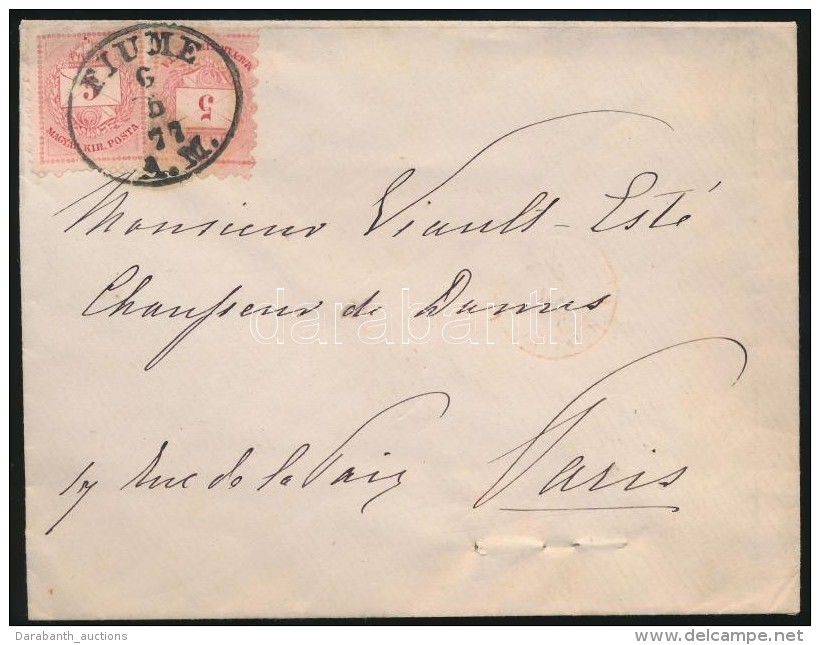 FIUME
G
6
77
A.M.
5
5
MAGYAR KIR. POSTA
Monsieur Viault-Esté
Chausseur de Dames
darabanth
17 Rue de la Paix Paris
Darabanth_auctions
http://www.delcampe.net